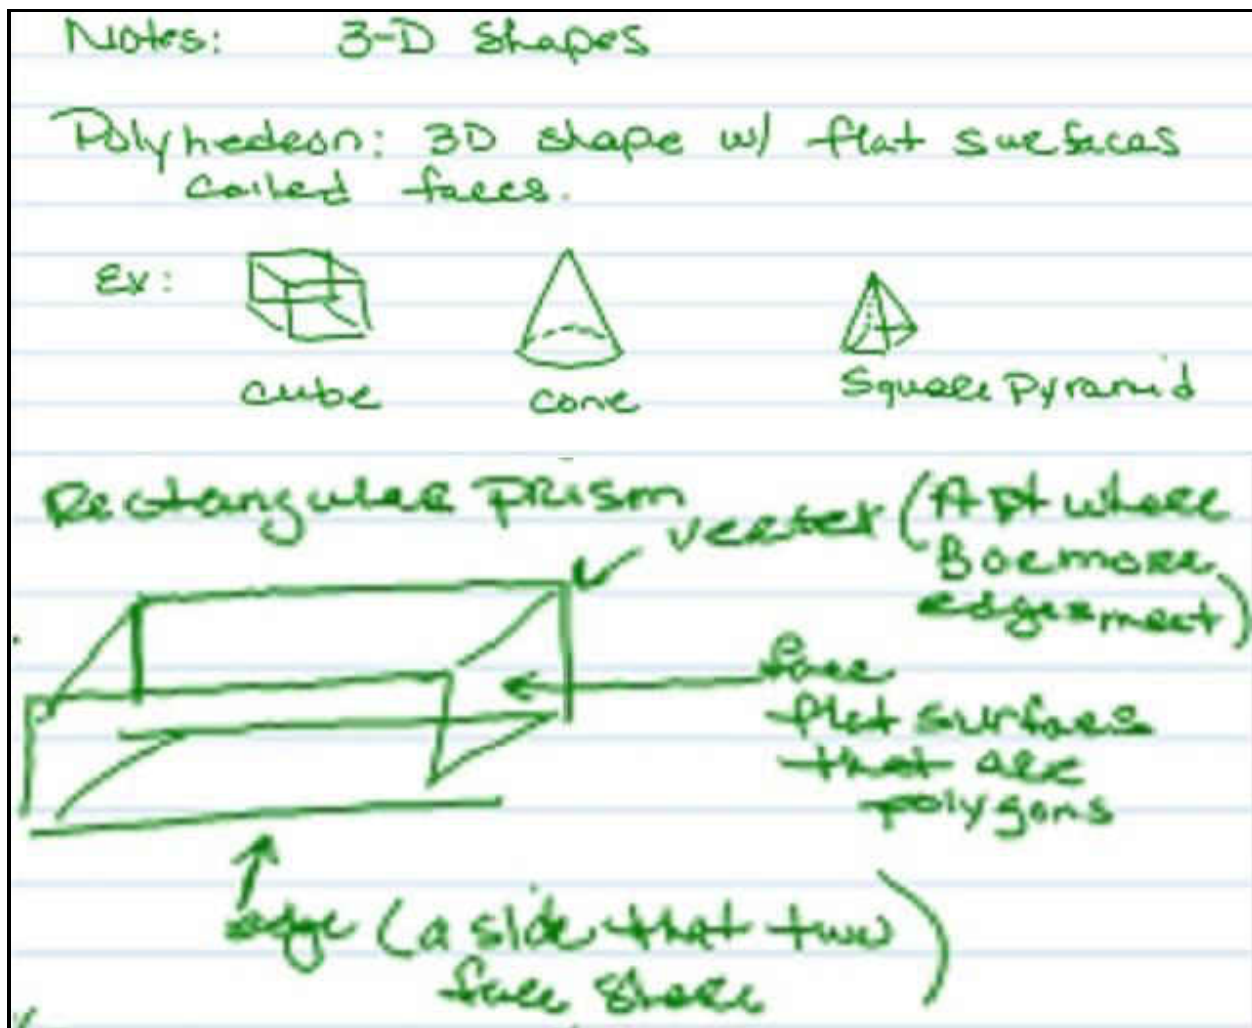 Notes: 3-D Shapes
Polyhedron: 3D shape w/ flat surfaces
called faces.
Ex:
cube cone Square Pyramid
Rectangular Prism
vertex (A pt where
3 or more
edges meet)
face
flat surfaces
that are
polygons
edge (a side that two
face share)